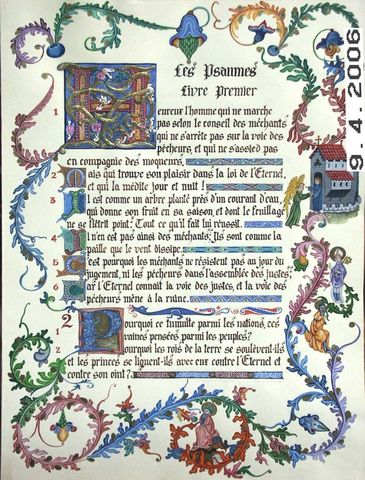 Les Psaumes
Livre Premier
1 Heureux l'homme qui ne marche
pas selon le conseil des méchants
qui ne s'arrête pas sur la voie des
pécheurs, et qui ne s'assied pas
en compagnie des moqueurs,
2 Mais qui trouve son plaisir dans la loi de l'Eternel,
et qui la médite jour et nuit!
3 Il est comme un arbre planté près d'un courant d'eau,
qui donne son fruit en sa saison, et dont le feuillage
ne se flétrit point: Tout ce qu'il fait lui réussit.
4 Il n'en est pas ainsi des méchants: Ils sont comme la
paille que le vent dissipe.
5 C'est pourquoi les méchants ne résistent pas au jour du
jugement, ni les pécheurs dans l'assemblée des justes;
6 Car l'Eternel connaît la voie des justes, et la voie des
pécheurs mène à la ruine.
2 Pourquoi ce tumulte parmi les nations, ces
vaines pensées parmi les peuples?
2 Pourquoi les rois de la terre se soulèvent-ils
et les princes se liguent-ils avec eux contre l'Eternel et
contre son oint?
9.4.2006